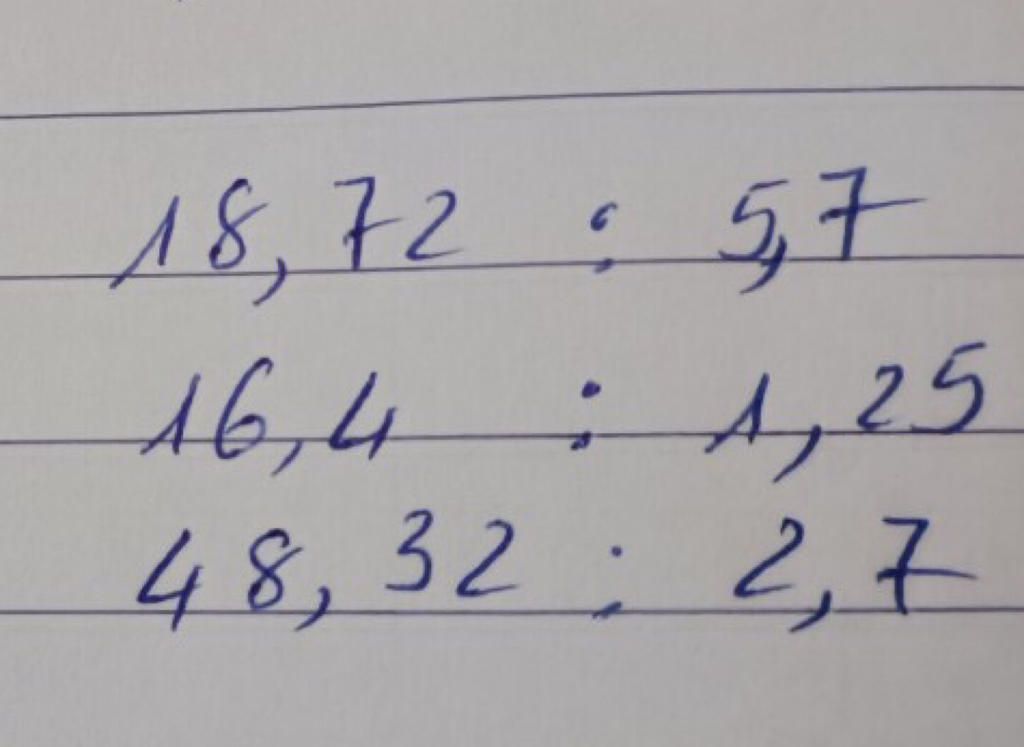 18,72 : 5,7
16,4 : 1,25
48,32 : 2,7